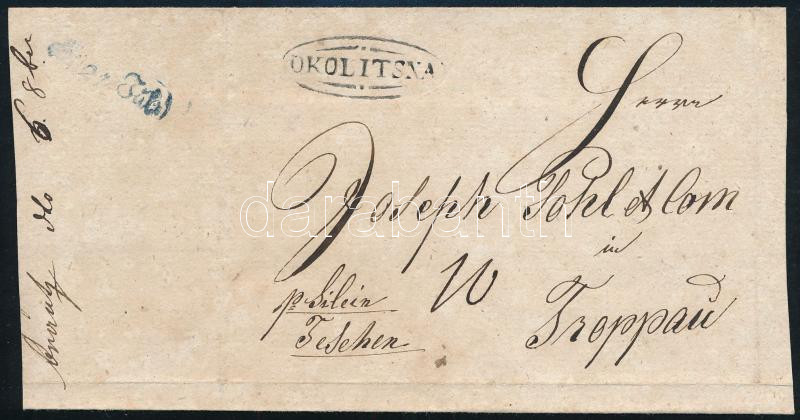 OKOLITSNA
Herrn
Joseph Pohl & Com
in
Troppau
10
pr Silein
Teschen
dto 6. 8ber
darabanth